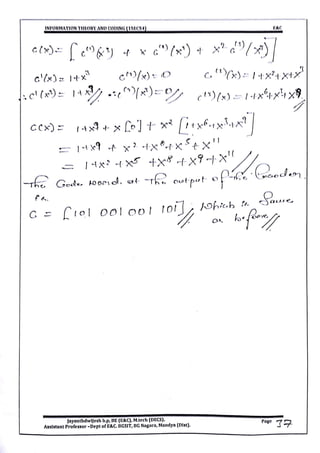 INFORMATION THEORY AND CODING (15EC54) E&C
C(x) = [ c⁽¹⁾(x³) + x c⁽²⁾(x³) + x² c⁽³⁾(x³) ]
c¹(x) = 1+x³ c⁽²⁾(x) = 0 c⁽³⁾(x) = 1+x²+x+x³
∴ c¹(x³) = 1+x⁹ ∴ c⁽²⁾(x³) = 0 c⁽³⁾(x³) = 1+x⁶+x³+x⁹
C(x) = 1+x⁹ + x[0] + x² [1+x⁶+x³+x⁹]
= 1+x⁹ + x² + x⁸ + x⁵ + x¹¹
= 1+x² + x⁵ + x⁸ + x⁹ + x¹¹
The Code word at the output of the Encoder
C = [101 001 001 101] which is Same
as before
Jayanthdwijesh h.p, BE (E&C), M.tech (DECS). Page 37
Assistant Professor –Dept of E&C. BGSIT, BG Nagara, Mandya (Dist).